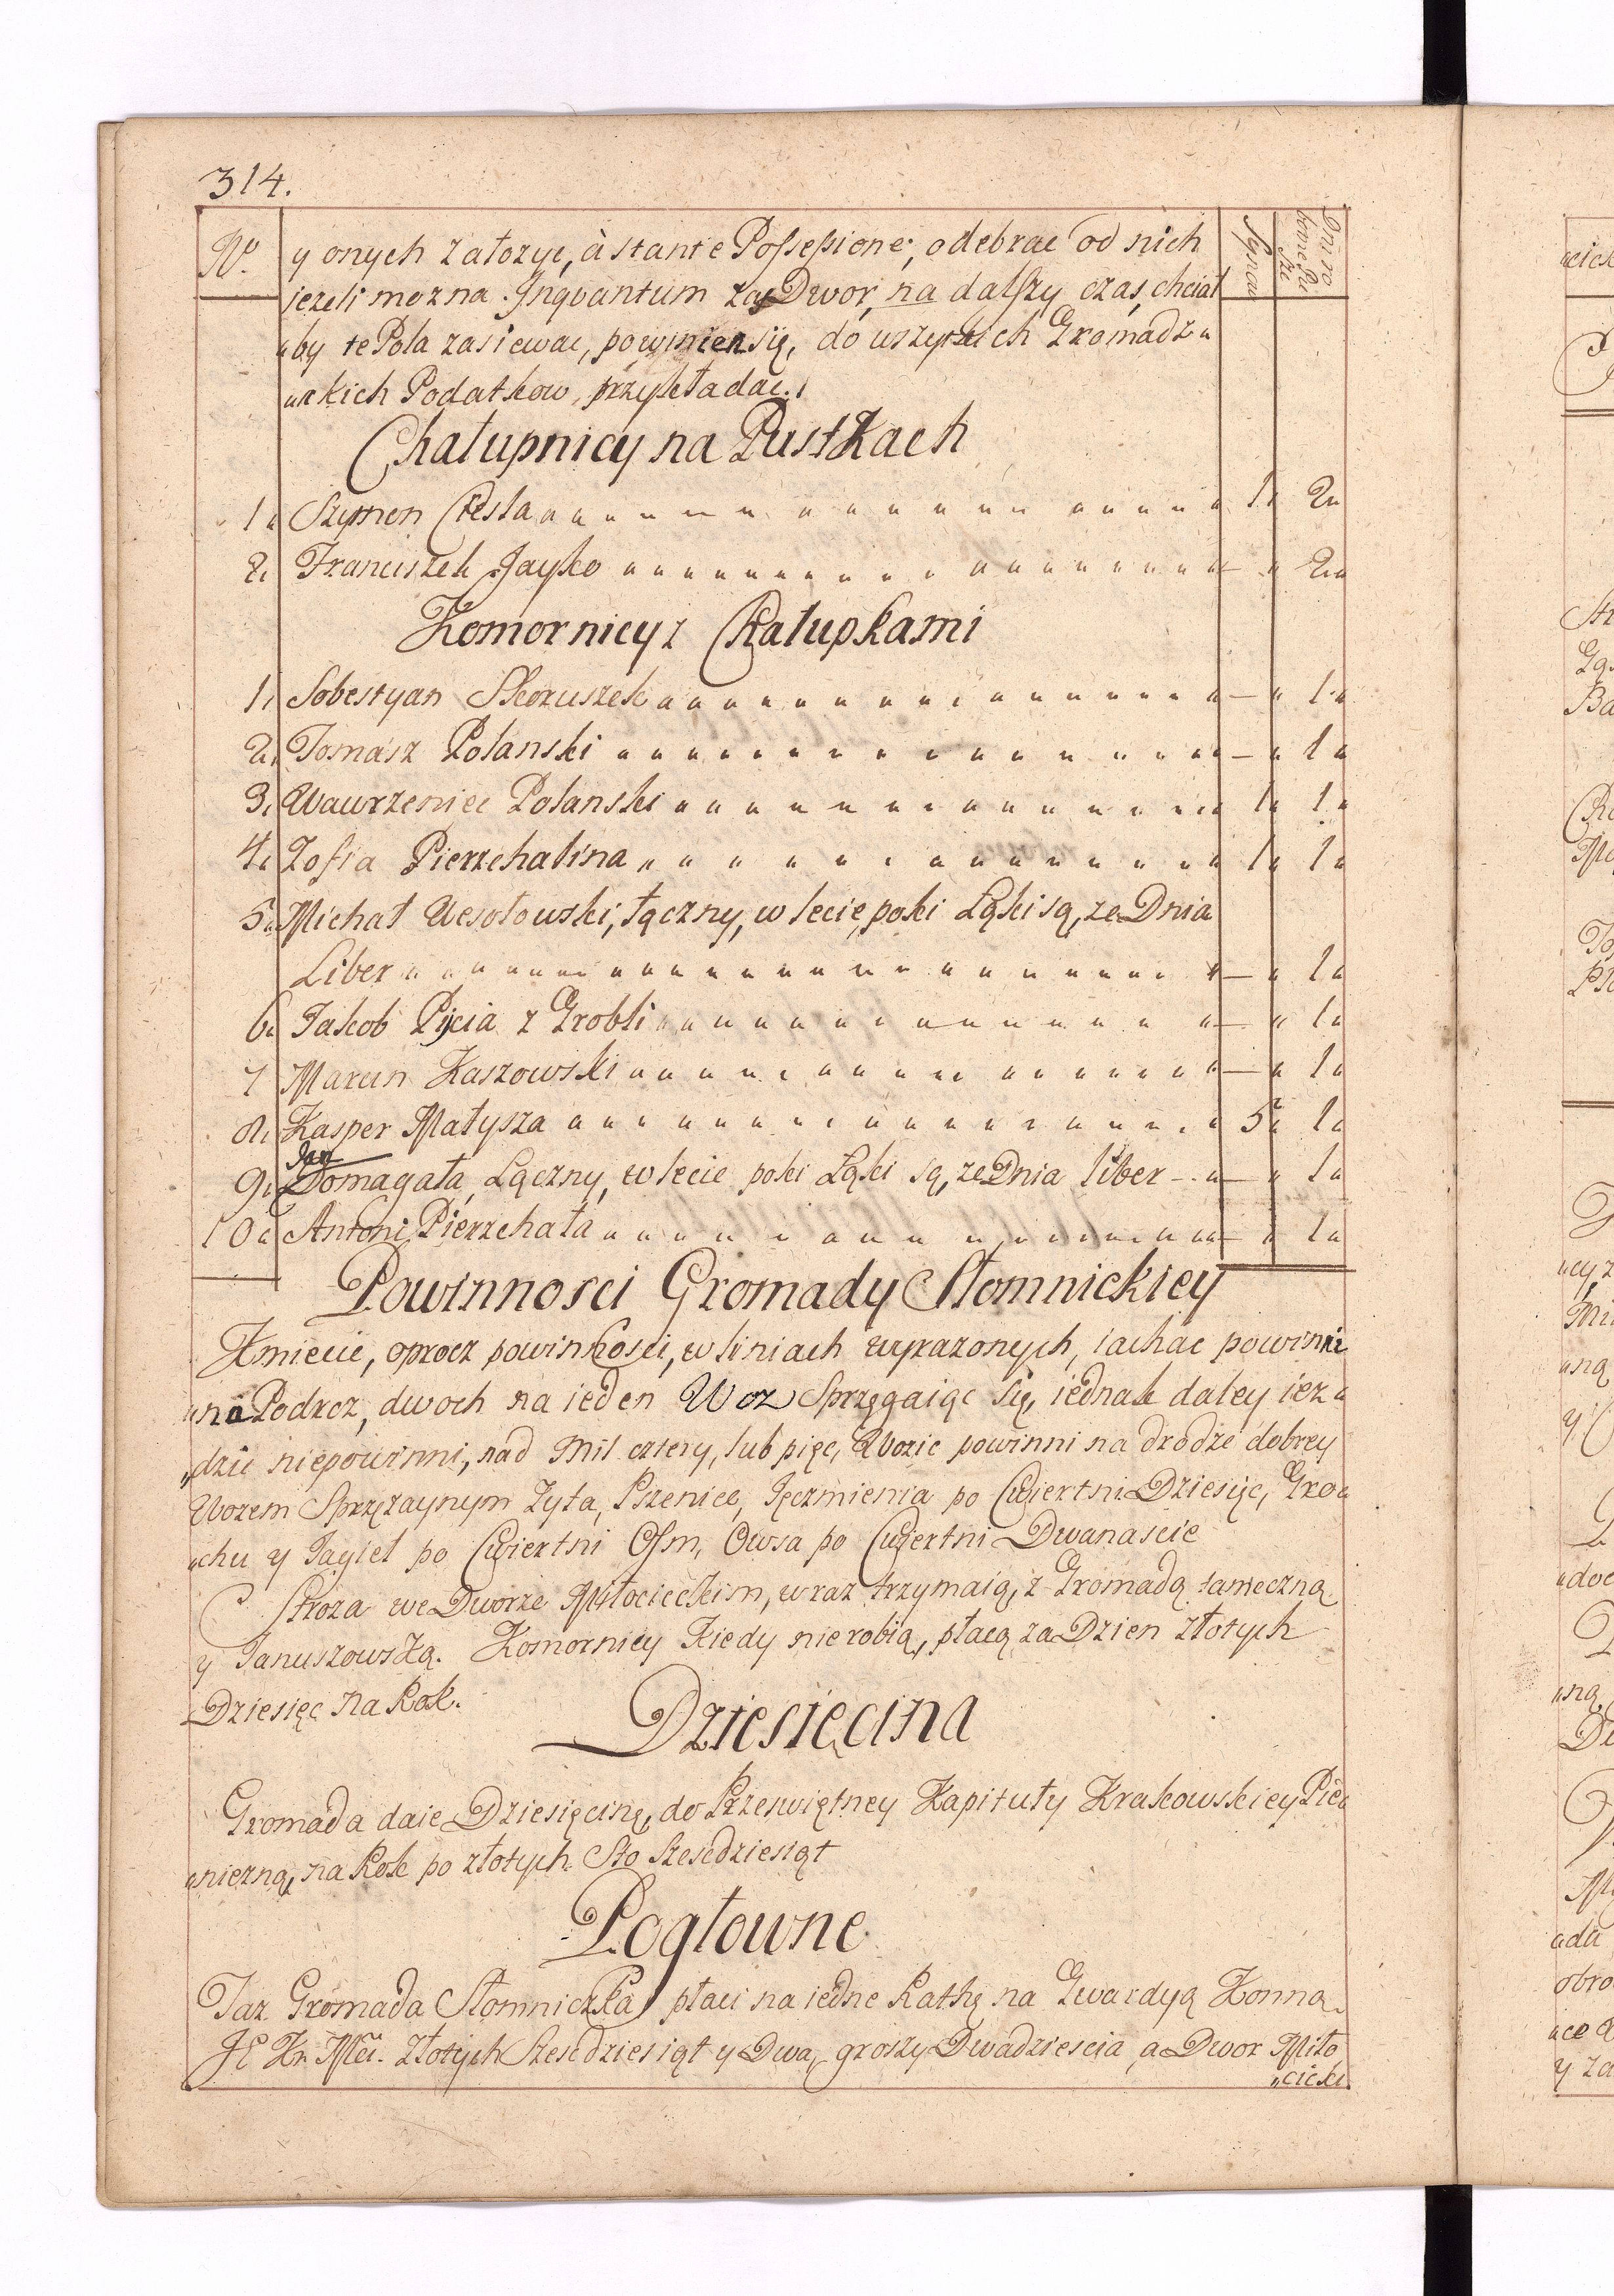 314.
No.
Synow
Dni ro
bocze Pie
sze
y onych założyć, à stante Possessione, odebrać od nich
jeżeli mozna. Inqvantum zaś Dwor, na dalszy czas, chciał
"by te Pola zasiewac, powinien się, do wszystkich Gromadz"
"kich Podatkow, przykładac.
Chałupnicy na Pustkach
1" Szymon Ciesla 1" 2"
2" Franciszek Jayko — " 2"
Komornicy z Chałupkami
1" Sobestyan Skoruszek — " 1"
2" Tomasz Polanski — " 1"
3" Wawrzeniec Polanski 1" 1"
4" Zofia Pierzchalina 1" 1"
5" Michał Wesołowski, łączny, w lecie, poki Łąki są, ze Dnia
Liber — " 1"
6" Jakob Pycia z Grobli — " 1"
7 Marcin Kaszowski — " 1"
8" Kasper Małysza 5" 1"
Jan
9" Domagała, Łączny, w lecie poki Łąki są, ze Dnia liber — " 1"
10" Antoni Pierzchała — " 1"
Powinnosci Gromady Słomnickiey
Kmiecie, oprocz powinnosci, w liniach wyrazonych, iachac powinni
"na Podroz, dwoch na ieden Woz Sprzęgaiąc się, iednak daley iez"
"dzic niepowinni, nad Mil cztery, lub pięc, Wozic powinni na drodze dobrey
Wozem Sprzężaynym Zyta, Pszenice, Jęczmienia po Cwiertni Dziesięc, Gro"
"chu y Jagieł po Cwiertni Osm, Owsa po Cwiertni Dwanascie
Stroza we Dworze Miłocieckim, wraz trzymaią, z Gromadą tameczną
y Januszowską. Komornicy kiedy nie robią, płacą za Dzien złotych
Dziesięc na Rok.
Dziesięcina
Gromada daie Dziesięcinę, do Przeswiętney Kapituły Krakowskiey Pie"
"niezną, na Rok po złotych Sto Szescdziesiąt
Pogłowne
Taz Gromada Słomniczka płaci na iedne Rathę na Gwardyą Konną
JE Kr. Mci. Złotych Szescdziesiąt y Dwa, groszy Dwadziescia, a Dwor Miło
"ciecki